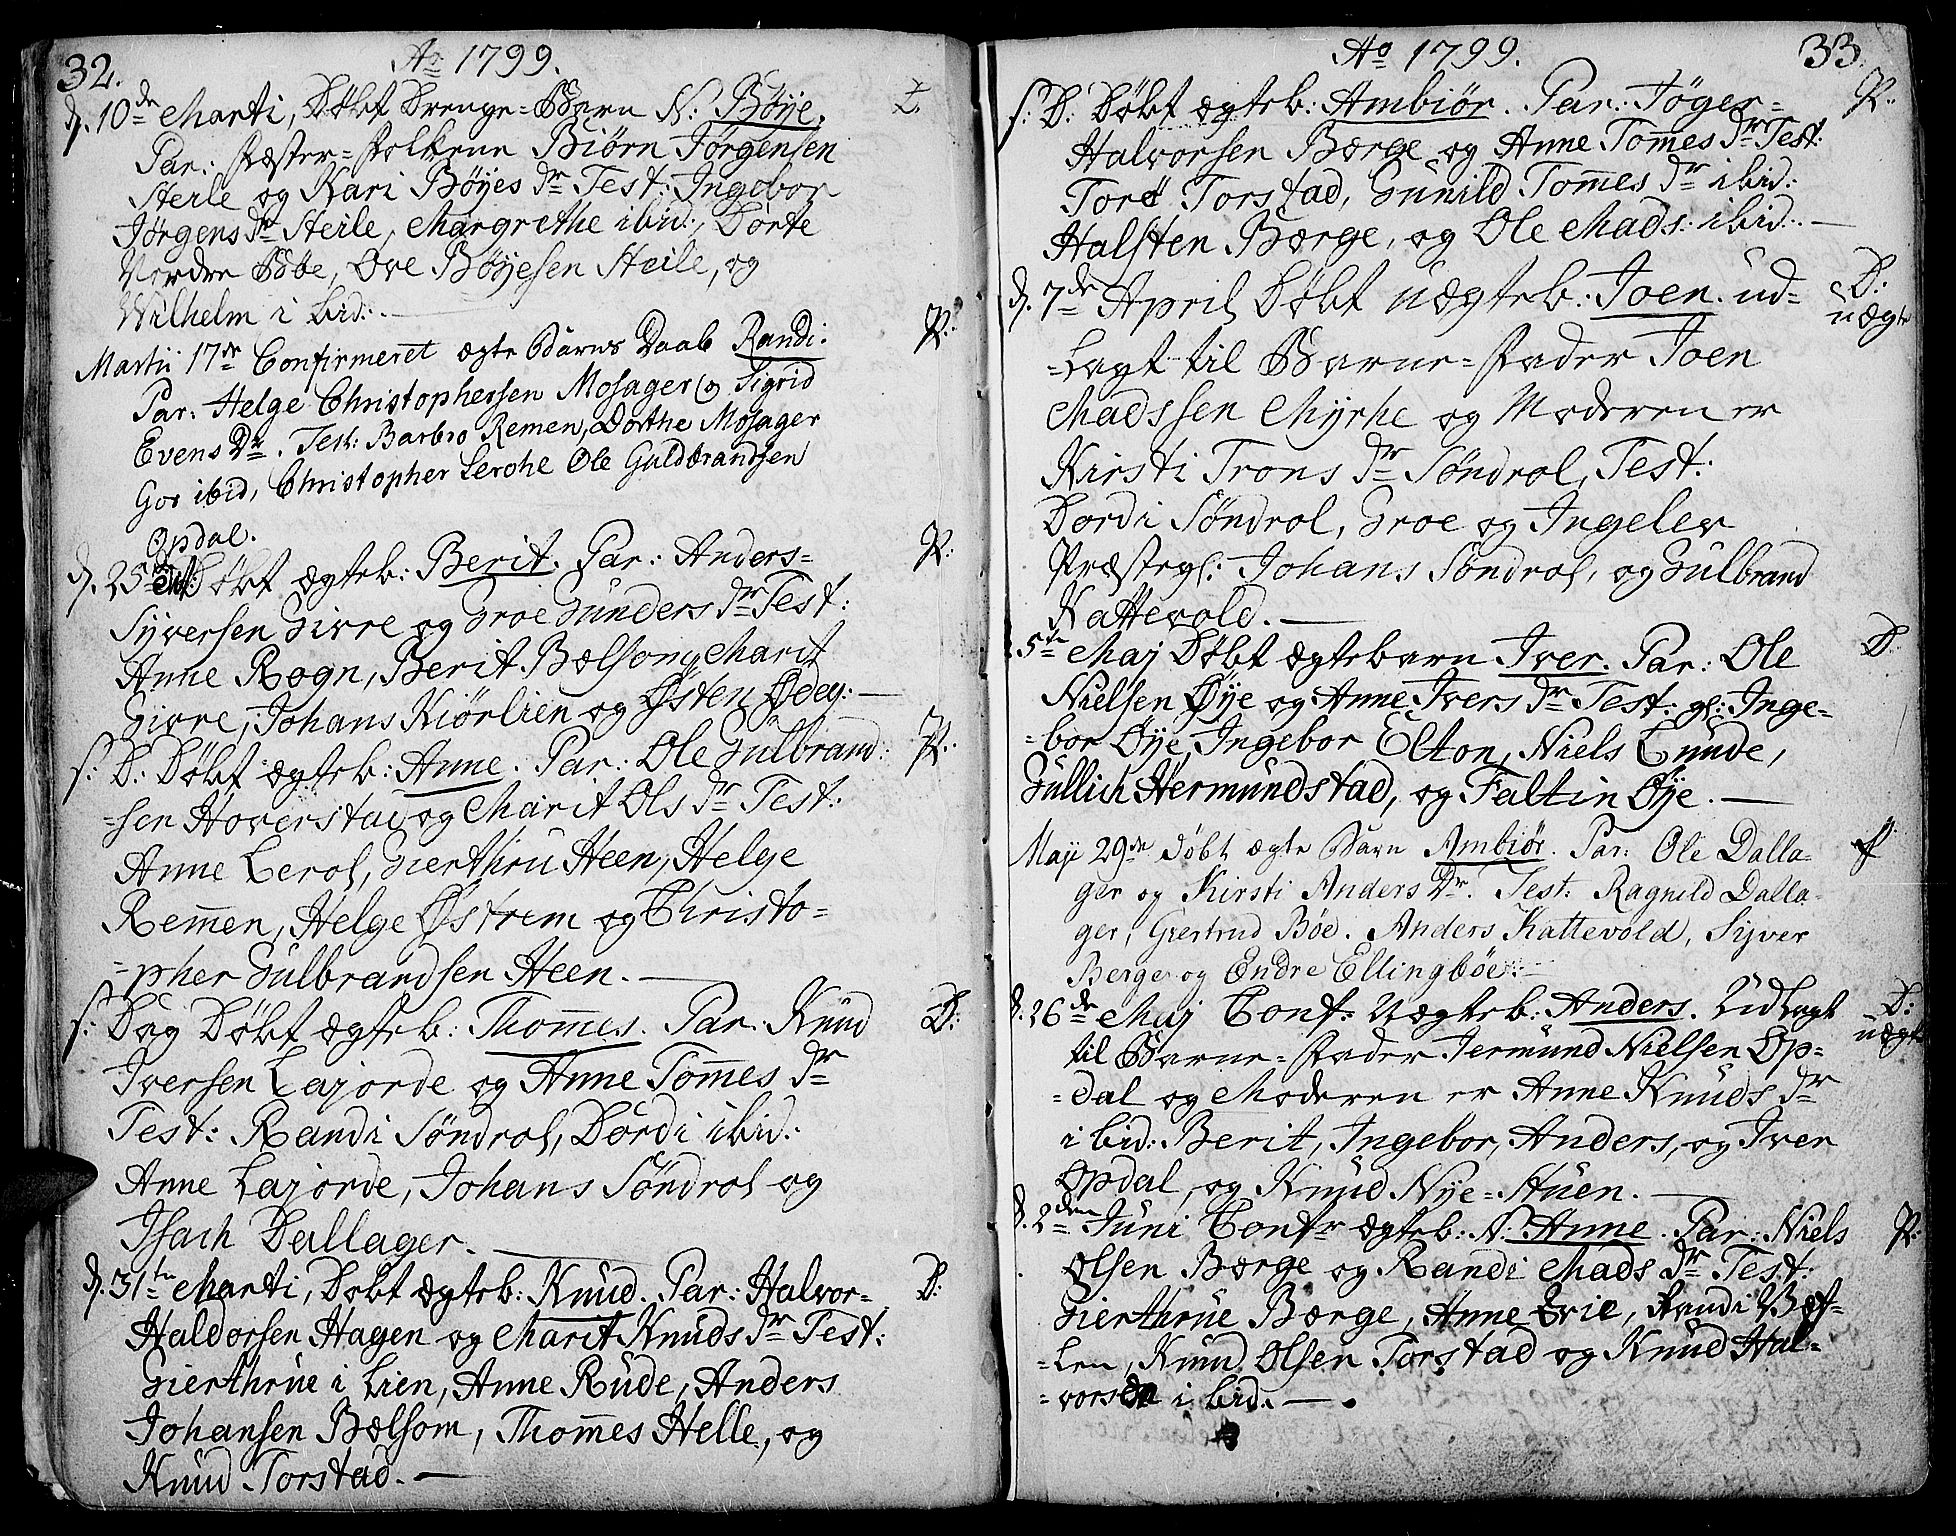 32. Ao 1799.
d. 10de Marti, Døbt Drenge-Barn N: Bøye.
Par: Fæster-Folkene Biørn Jørgensen
Steile og Kari Bøyes Dr Test: Ingebor
Jørgens Dr Steile, Margrethe ibid:, Dorte
Nordre Bøe, Ove Bøyesen Steile, og
Wilhelm ibid:.
Martii 17de Confirmeret ægte Barns Daab Randi. P:
Par: Helge Christophersen Mosager og Sigrid
Evens Dr. Test: Barbro Remen, Dorthe Mosager
Goe ibid, Christopher Lerohe Ole Guldbrandsen
Opdal.
d. 25de Døbt ægteb: Berit. Par: Anders- P:
Syversen Givre og Groe Gunders Dr Test:
Anne Rogn, Berit Bælsom, Marit
Givre, Johans Kiørlien og Østen Ødeg: —
s: D: Døbt ægteb: Anne. Par: Ole Gulbrand: P:
-sen Hoverstad og Marit Ols Dr Test:
Anne Lerol, Gierthru Heen, Helge
Remen, Helge Østrem og Christo=
=pher Gulbrandsen Heen. —
s: Dag Døbt ægteb: Thommes. Par: Knud D:
Iversen Lajorde og Anne Tommes Dr
Test: Randi Søndrol, Dordi ibid:
Anne Lajorde, Johans Søndrol og
Isach Dallager. —
d. 31te Marti, Døbt ægteb: Knud. Par: Halvor- D:
Haldorsen Hagen og Marit Knuds Dr Test:
Gierthrue i Lien, Anne Rude, Anders
Johansen Bælsom, Thommes Helle, og
Knud Torstad. —
Ao 1799. 33.
s: D: Døbt ægteb: Ambiør. Par: Jøger- P:
Halvorsen Børge og Anne Tommes Dr Test:
Tore Torstad, Gunild Tommes Dr ibid:
Halsten Børge, og Ole Mads: ibid: —
d. 7de April Døbt uægteb: Joen. ud= D:
uægte
=lagt til Barne-Fader Joen
Madssen Myrhe og Moderen er
Kirsti Trons Dr Søndrol, Test:
Dordi Søndrol, Groe og Ingelev
Præstegl: Johans Søndrol, og Gulbrand
Kattevold. —
5te Maj Døbt ægtebarn Iver. Par: Ole D:
Nielsen Øye og Anne Ivers Dr Test: gl: Inge=
=bor Øye, Ingebor Elton, Niels Qunde,
Gullich Hermundstad, og Faltin Øye. —
Maji 29de Døbt ægte Barn Ambiør. Par: Ole Dalla-
ger og Kirsti Anders Dr. Test: Ragnild Dalla-
ger, Giertrud Bøe. Anders Kattevold, Syver
Berge og Endre Ellingbøe: —
d. 26de Maj Conf: Uægteb: Anders. Udlagt D:
uægte
til Barne-Fader Jermund Nielsen Op=
=dal og Moderen er Anne Knuds Dr
ibid: Berit, Ingebor, Anders, og Iver
Opdal, og Knud Nye=Stuen. —
d. 2den Juni Confr ægteb: N: Anne. Par: Niels P:
Olsen Børge og Randi Mads Dr Test:
Gierthrue Børge, Anne Qvie, Randi Wæf=
=len, Knud Olsen Torstad og Knud Hal=
=vorsen ibid. —.